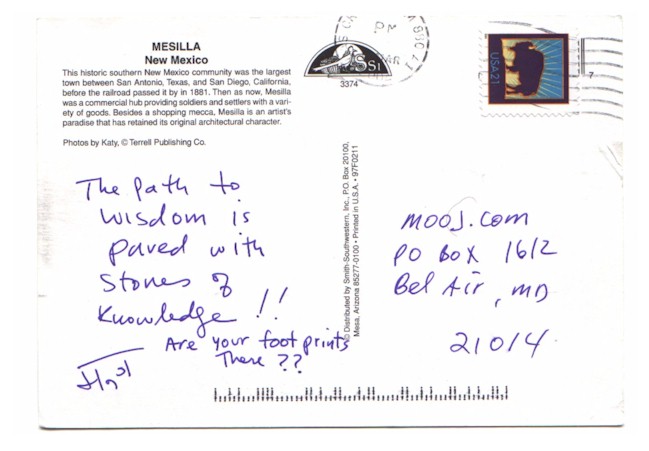 MESILLA
New Mexico
This historic southern New Mexico community was the largest
town between San Antonio, Texas, and San Diego, California,
before the railroad passed it by in 1881. Then as now, Mesilla
was a commercial hub providing soldiers and settlers with a vari-
ety of goods. Besides a shopping mecca, Mesilla is an artist's
paradise that has retained its original architectural character.
Photos by Katy, © Terrell Publishing Co.
SSI
3374
PM
USA21
7
The path to
wisdom is
paved with
stones of
Knowledge !!
Are your foot prints
There ??
© Distributed by Smith-Southwestern, Inc., P.O. Box 20100,
Mesa, Arizona 85277-0100 • Printed in U.S.A. • 97F0211
MOOJ.com
PO BOX 1612
Bel Air, MD
21014